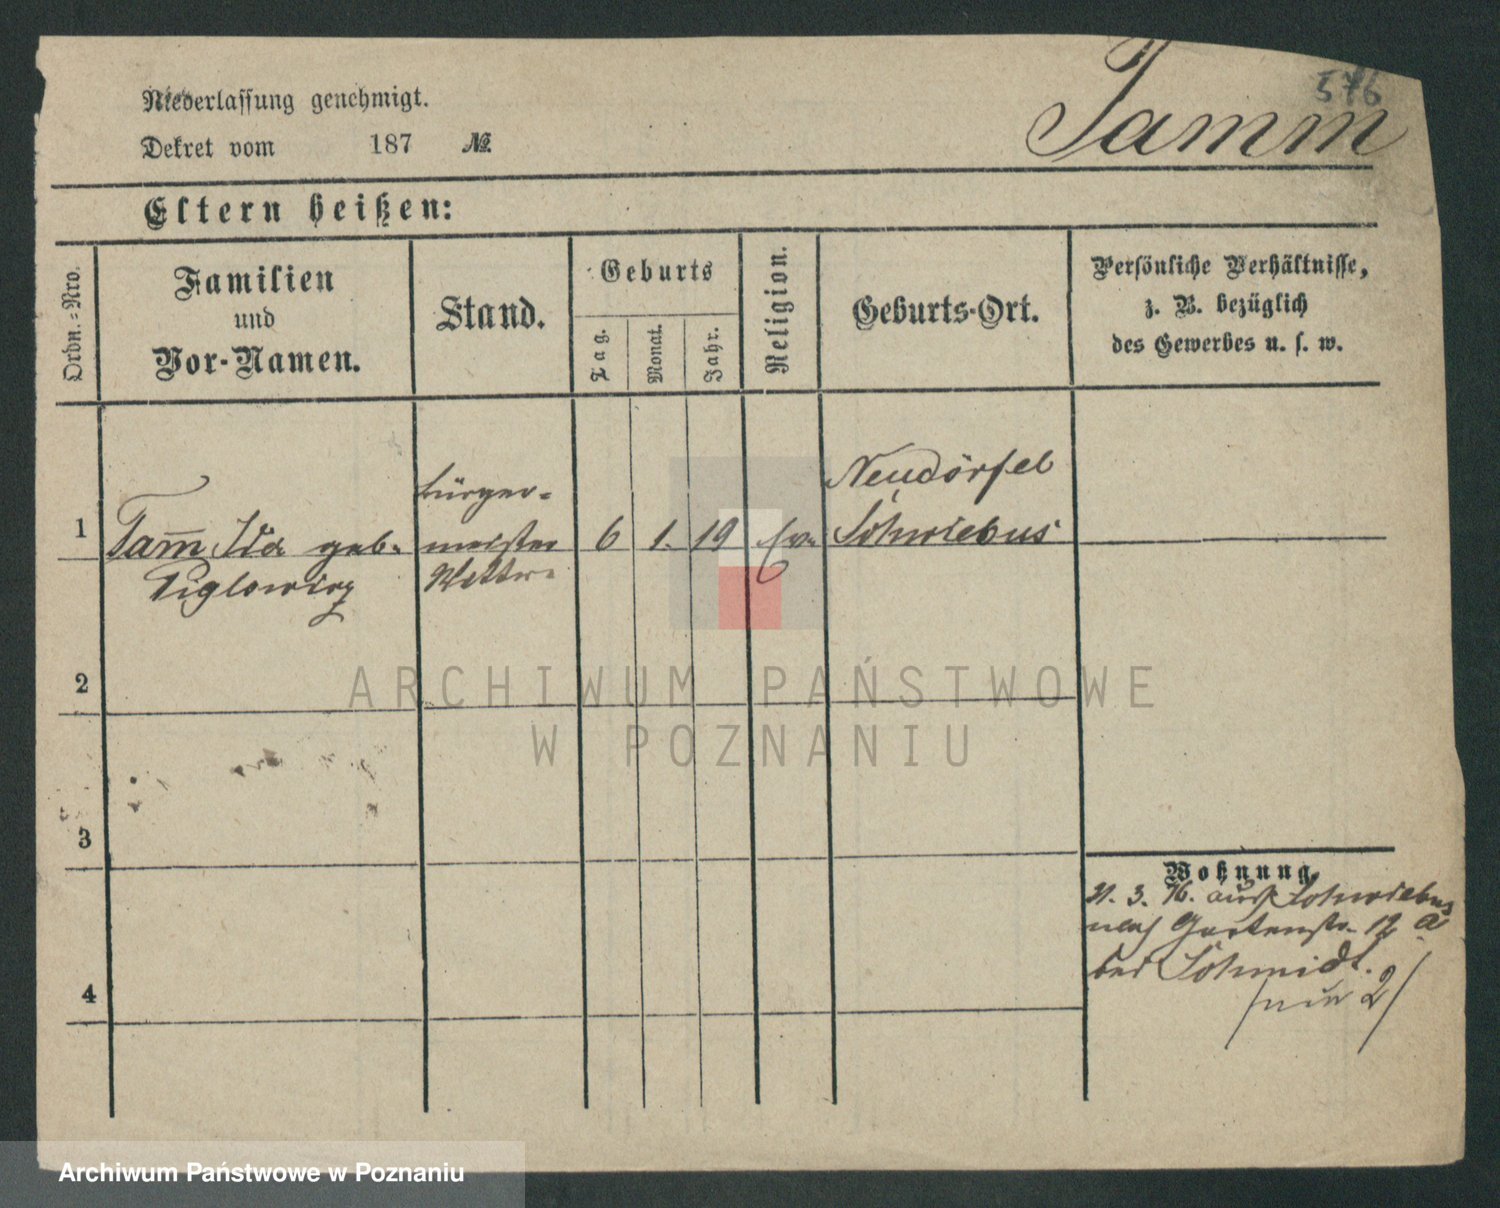 576
Tamm
Niederlassung genehmigt.
Dekret vom 187 №.
Eltern heißen:
Ordn.-Nro.
Familien
und
Vor-Namen.
Stand.
Geburts
Tag.
Monat.
Jahr.
Religion.
Geburts-Ort.
Persönliche Verhältnisse,
z. B. bezüglich
des Gewerbes u. s. w.
bürger-
Neudörfel
1 Tam̅ Ida geb. meister 6 1. 19 Ev. Schwiebus
Piglowicz
Wittwe
2
ARCHIWUM PAŃSTWOWE
W POZNANIU
3
Wohnung.
3. 76. aus Schwiebus
nach Gartenstr. 12 a
bei Schmidt.
4
Archiwum Państwowe w Poznaniu